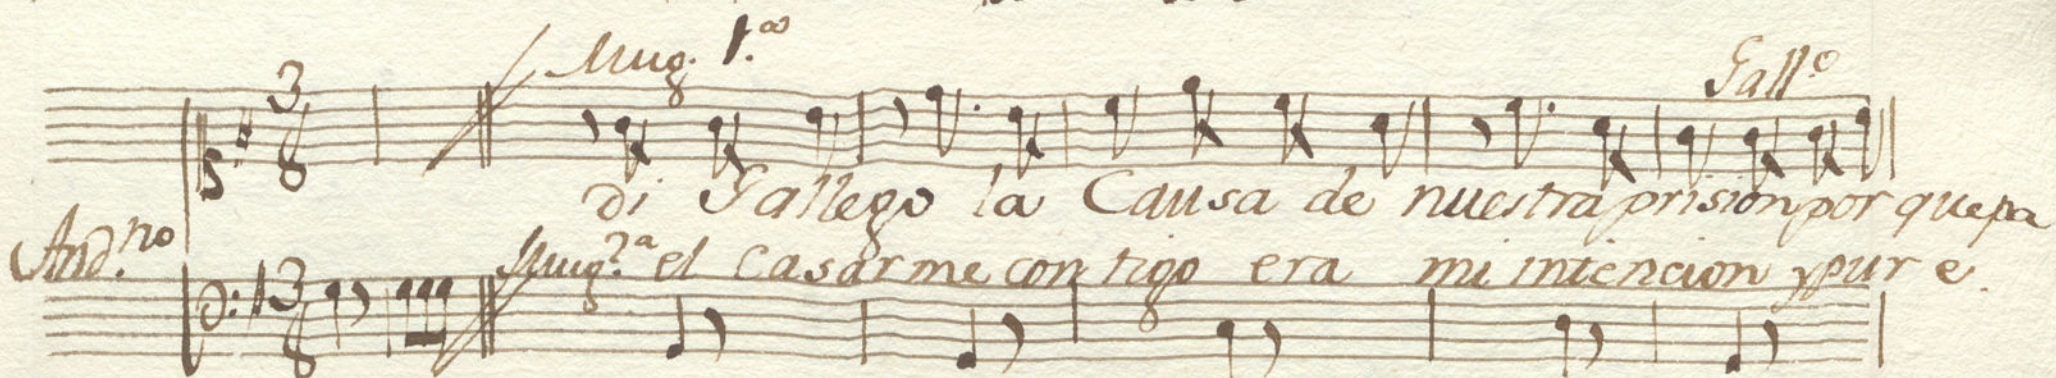 Mug. 1.ª
Gall.º
di Gallego la Causa de nuestra prision por que pa
And.no
Mug. 2.ª el casarme contigo era mi intencion y pur e.